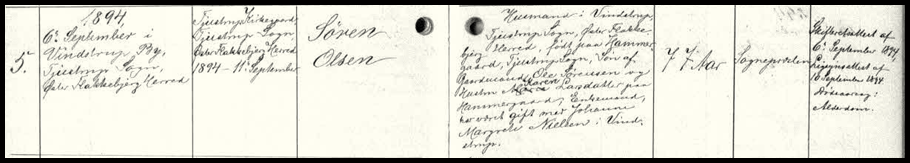 5.
1894,
6te September i
Vindstrup By,
Tjustrup Sogn,
Øster Flakkebjerg Herred
Tjustrup Kirkegaard,
Tjustrup Sogn
Øster Flakkebjerg Herred
1894 - 11te September
Sören
Olsen
Husmand i Vindstrup,
Tjustrup Sogn, Øster Flakke-
bjerg Herred, født paa Hammer-
gaard, Tjustrup Sogn, Søn af
Gaardmand Ole Sørensen og
Hustru Maren Larsdatter paa
Hammergaard, Enkemand,
har været gift med Johanne
Margrete Nielsen i Vind-
strup.
77 Aar
Sognepræsten
Skifteretsattest af
6te September 1894,
Ligsynsattest af
10 September 1894
Dødsaarsag:
Alderdom.